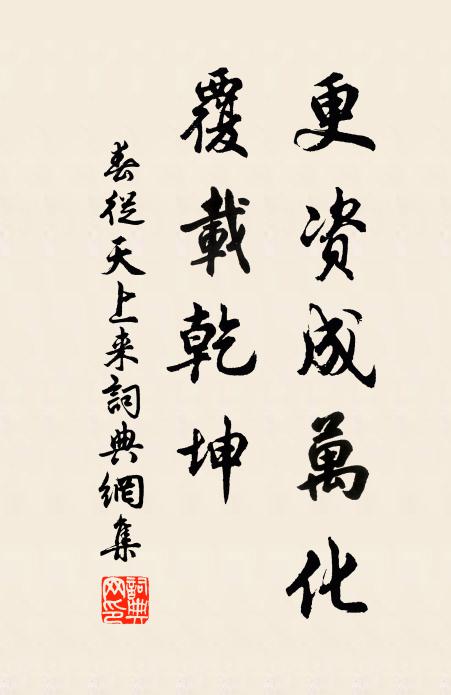 更资成萬化
覆載乾坤
春從天上来詞典網集
詞典网印